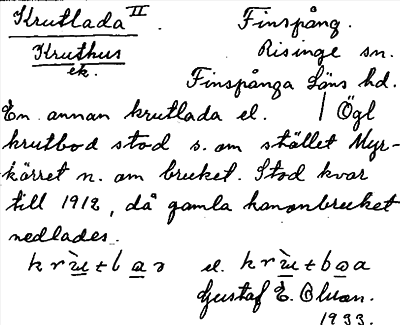 Krutlada II. Finspång.
Kruthus Risinge sn.
ek. Finspånga Läns hd.
En annan krutlada el. / Ögl
krutbod stod s. om stället Myr-
kärret n. om bruket. Stod kvar
till 1912, då gamla kanonbruket
nedlades.
krùtbaɔ el. krùtboa
Gustaf E. Olsson.
1933.